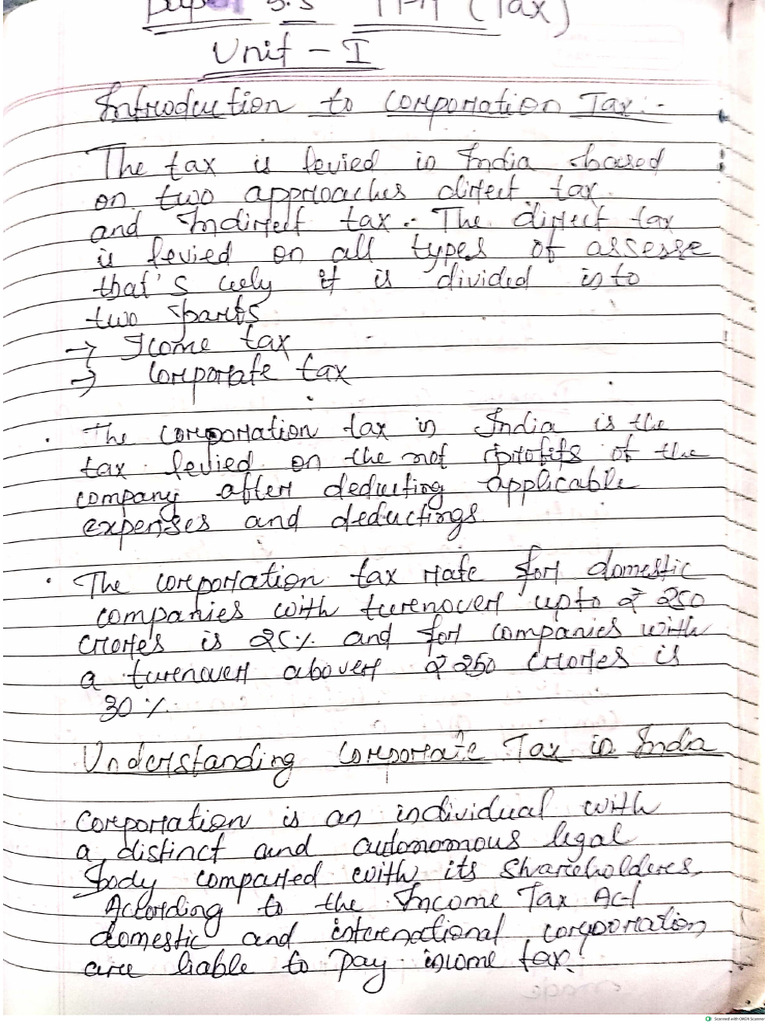 Paper 5.5 (Tax)
Unit - I
Introduction to Corporation Tax :-
The tax is levied in India based
on two approaches direct tax
and Indirect tax. The direct tax
is levied on all types of assesse
that's why it is divided into
two parts
→ Icome tax
→ Corporate tax
• The corporation tax in India is the
tax levied on the not profits of the
company after deducting applicable
expenses and deductings.
• The corporation tax rate for domestic
companies with turnover upto ₹ 250
crores is 25% and for companies with
a turnover abover ₹ 250 crores is
30 %
Understanding Corporate Tax in India
Corporation is an individual with
a distinct and autonomous legal
body compared with its shareholders.
According to the Income Tax Act
domestic and international corporation
are liable to pay income tax.
Scanned with OKEN Scanner